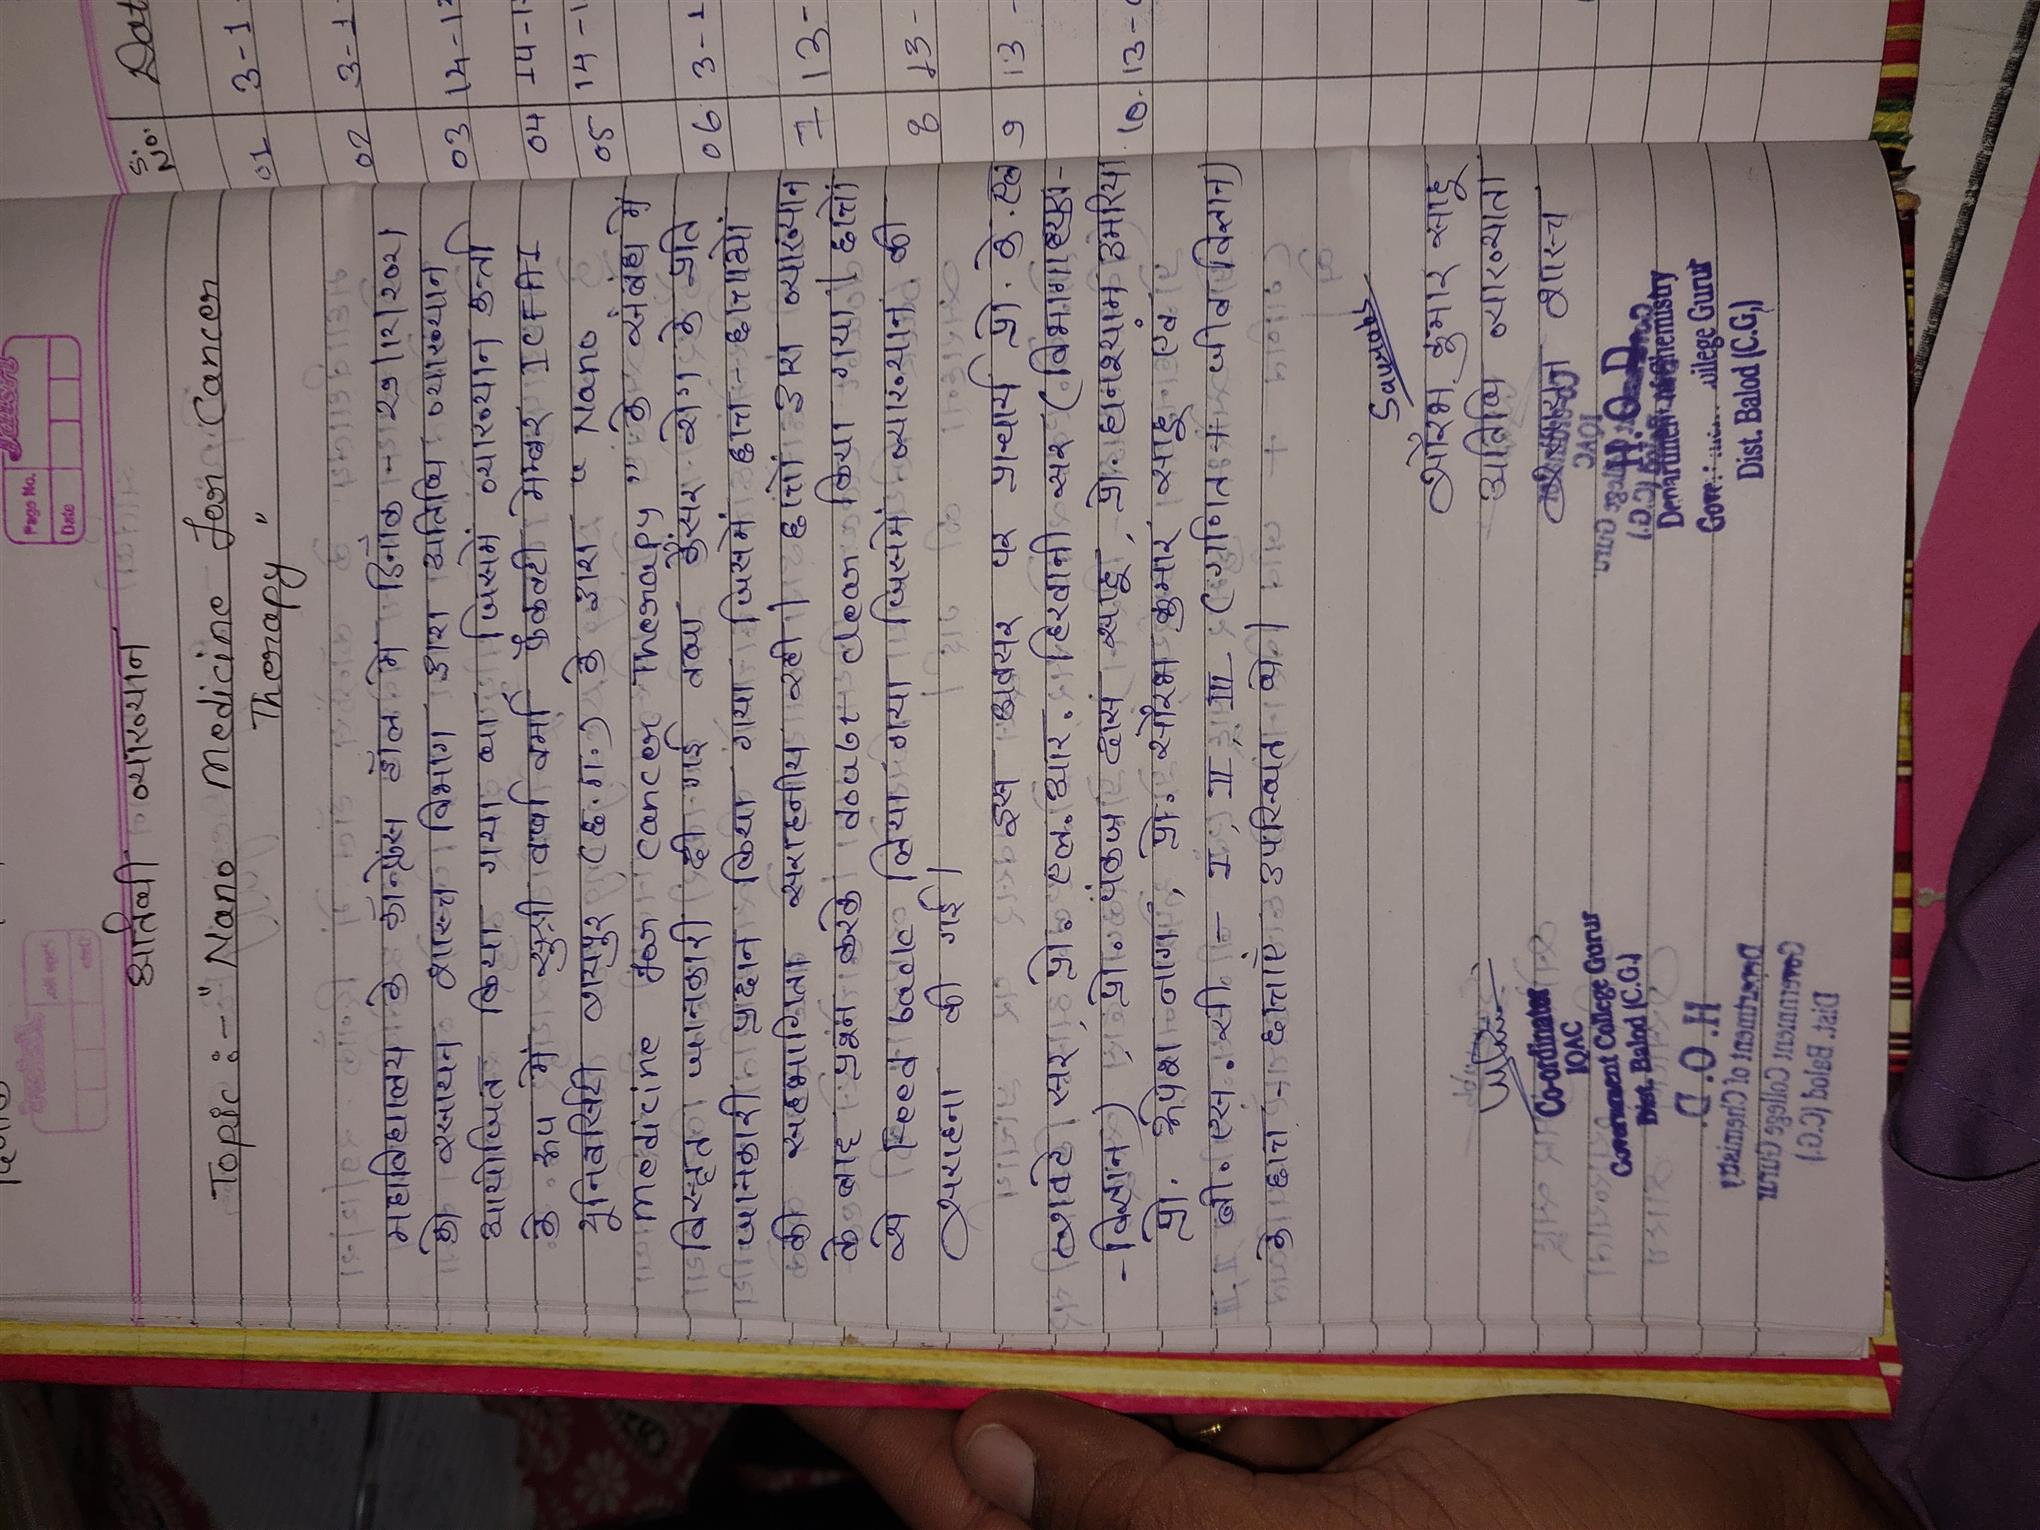 अतिथी व्याख्यान
Topic :- " Nano Medicine for Cancer
Therapy "
माहाविद्यालय के कॉन्फ्रेंस हॉल में दिनाँक - 27/12/2021
को रसायन शास्त्र विभाग द्वारा अतिथि व्याख्यान
आयोजित किया गया था जिसमें व्याख्यान कर्त्ता
के रूप में सुश्री वर्षा वर्मा फैकल्टी मेम्बर ICFAI
यूनिवर्सिटी रायपुर (छ.ग.) के द्वारा " Nano
medicine for cancer Therapy " के संबंध में
विस्तृत जानकारी दी गई तथा कैंसर रोग के प्रति
जानकारी प्रदान किया गया जिसमें छात्र - छात्राओं
की सहभागिता सराहनीय रही। छात्रों द्वारा व्याख्यान
के बाद प्रश्न करके doubt clear किया गया। छात्रों
से feed back लिया गया जिसमें व्याख्यान की
सराहना की गई।
इस अवसर पर प्राचार्य प्रो. के. एल
रावटे सर, प्रो. एल. आर. हिरवानी सर (विभागाध्यक्ष -
- विज्ञान), प्रो. पंकज दास साहू, प्रो. घनश्याम उमरिया
प्रो. रूपेश नाग, प्रो. सौरभ कुमार साहू एवं
बी. एस. सी - I, II, III (गणित + जीव विज्ञान)
के छात्र - छात्राएं उपस्थित थे।
Saurabh
सौरभ कुमार साहू
अतिथि व्याख्याता
रसायन शास्त्र
Co-ordinator
IQAC
Government College Gurur
Dist. Balod (C.G.)
H.O.D
Department of Chemistry
Govt. College Gurur
Dist. Balod (C.G.)
S. No. Dat
01 3-1
02 3-1
03 14-1
04 14-1
05 14-1
06 3-1
7 13-
8 13-
9 13-
10. 13-
Page No.
Date